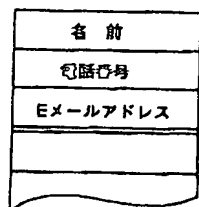 名前
電話番号
Eメールアドレス